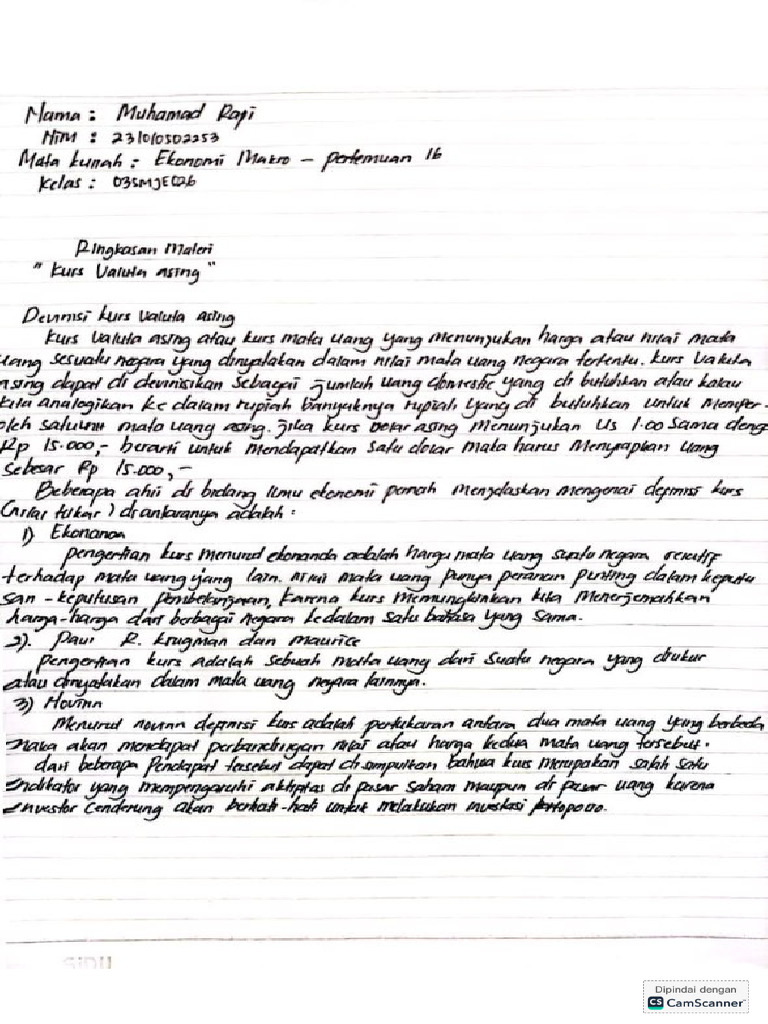 Nama : Muhamad Rapi
NIM : 231010502253
Mata kuliah : Ekonomi Makro - pertemuan 16
Kelas : 03SMJE026
Ringkasan Materi
" Kurs Valuta asing "
Devinisi kurs valuta asing
Kurs valuta asing atau kurs mata uang yang menunjukan harga atau nilai mata
uang sesuatu negara yang dinyatakan dalam nilai mata uang negara tertentu. kurs valuta
asing dapat di devinisikan sebagai jumlah uang domestic yang di butuhkan atau kalau
kita analogikan ke dalam rupiah banyaknya rupiah yang di butuhkan untuk memper-
oleh satuan mata uang asing. Jika kurs dolar asing menunjukan US 1.00 sama denga
Rp 15.000,- berarti untuk mendapatkan satu dolar maka harus menyiapkan uang
sebesar Rp 15.000,-
Beberapa ahli di bidang ilmu ekonomi pernah menjelaskan mengenai depinisi kurs
(nilai tukar) diantaranya adalah :
1) Ekananda
pengertian kurs menurut ekananda adalah harga mata uang suatu negara relatif
terhadap mata uang yang lain. nilai mata uang punya peranan penting dalam keputu
san - keputusan pembelanjaan, karena kurs memungkinkan kita menerjemahkan
harga-harga dari berbagai negara kedalam satu bahasa yang sama.
2). Paul R. Krugman dan maurice
pengertian kurs adalah sebuah mata uang dari suatu negara yang diukur
atau dinyatakan dalam mata uang negara lainnya.
3)
Menurut depinisi kurs adalah pertukaran antara dua mata uang yang berbeda
maka akan mendapat perbandingan nilai atau harga kedua mata uang tersebut.
dari beberapa pendapat tersebut dapat di simpulkan bahwa kurs merupakan salah satu
indikator yang mempengaruhi aktipitas di pasar saham maupun di pasar uang karena
investor cenderung akan berhati-hati untuk melakukan investasi
SIDU
Dipindai dengan
CS CamScanner